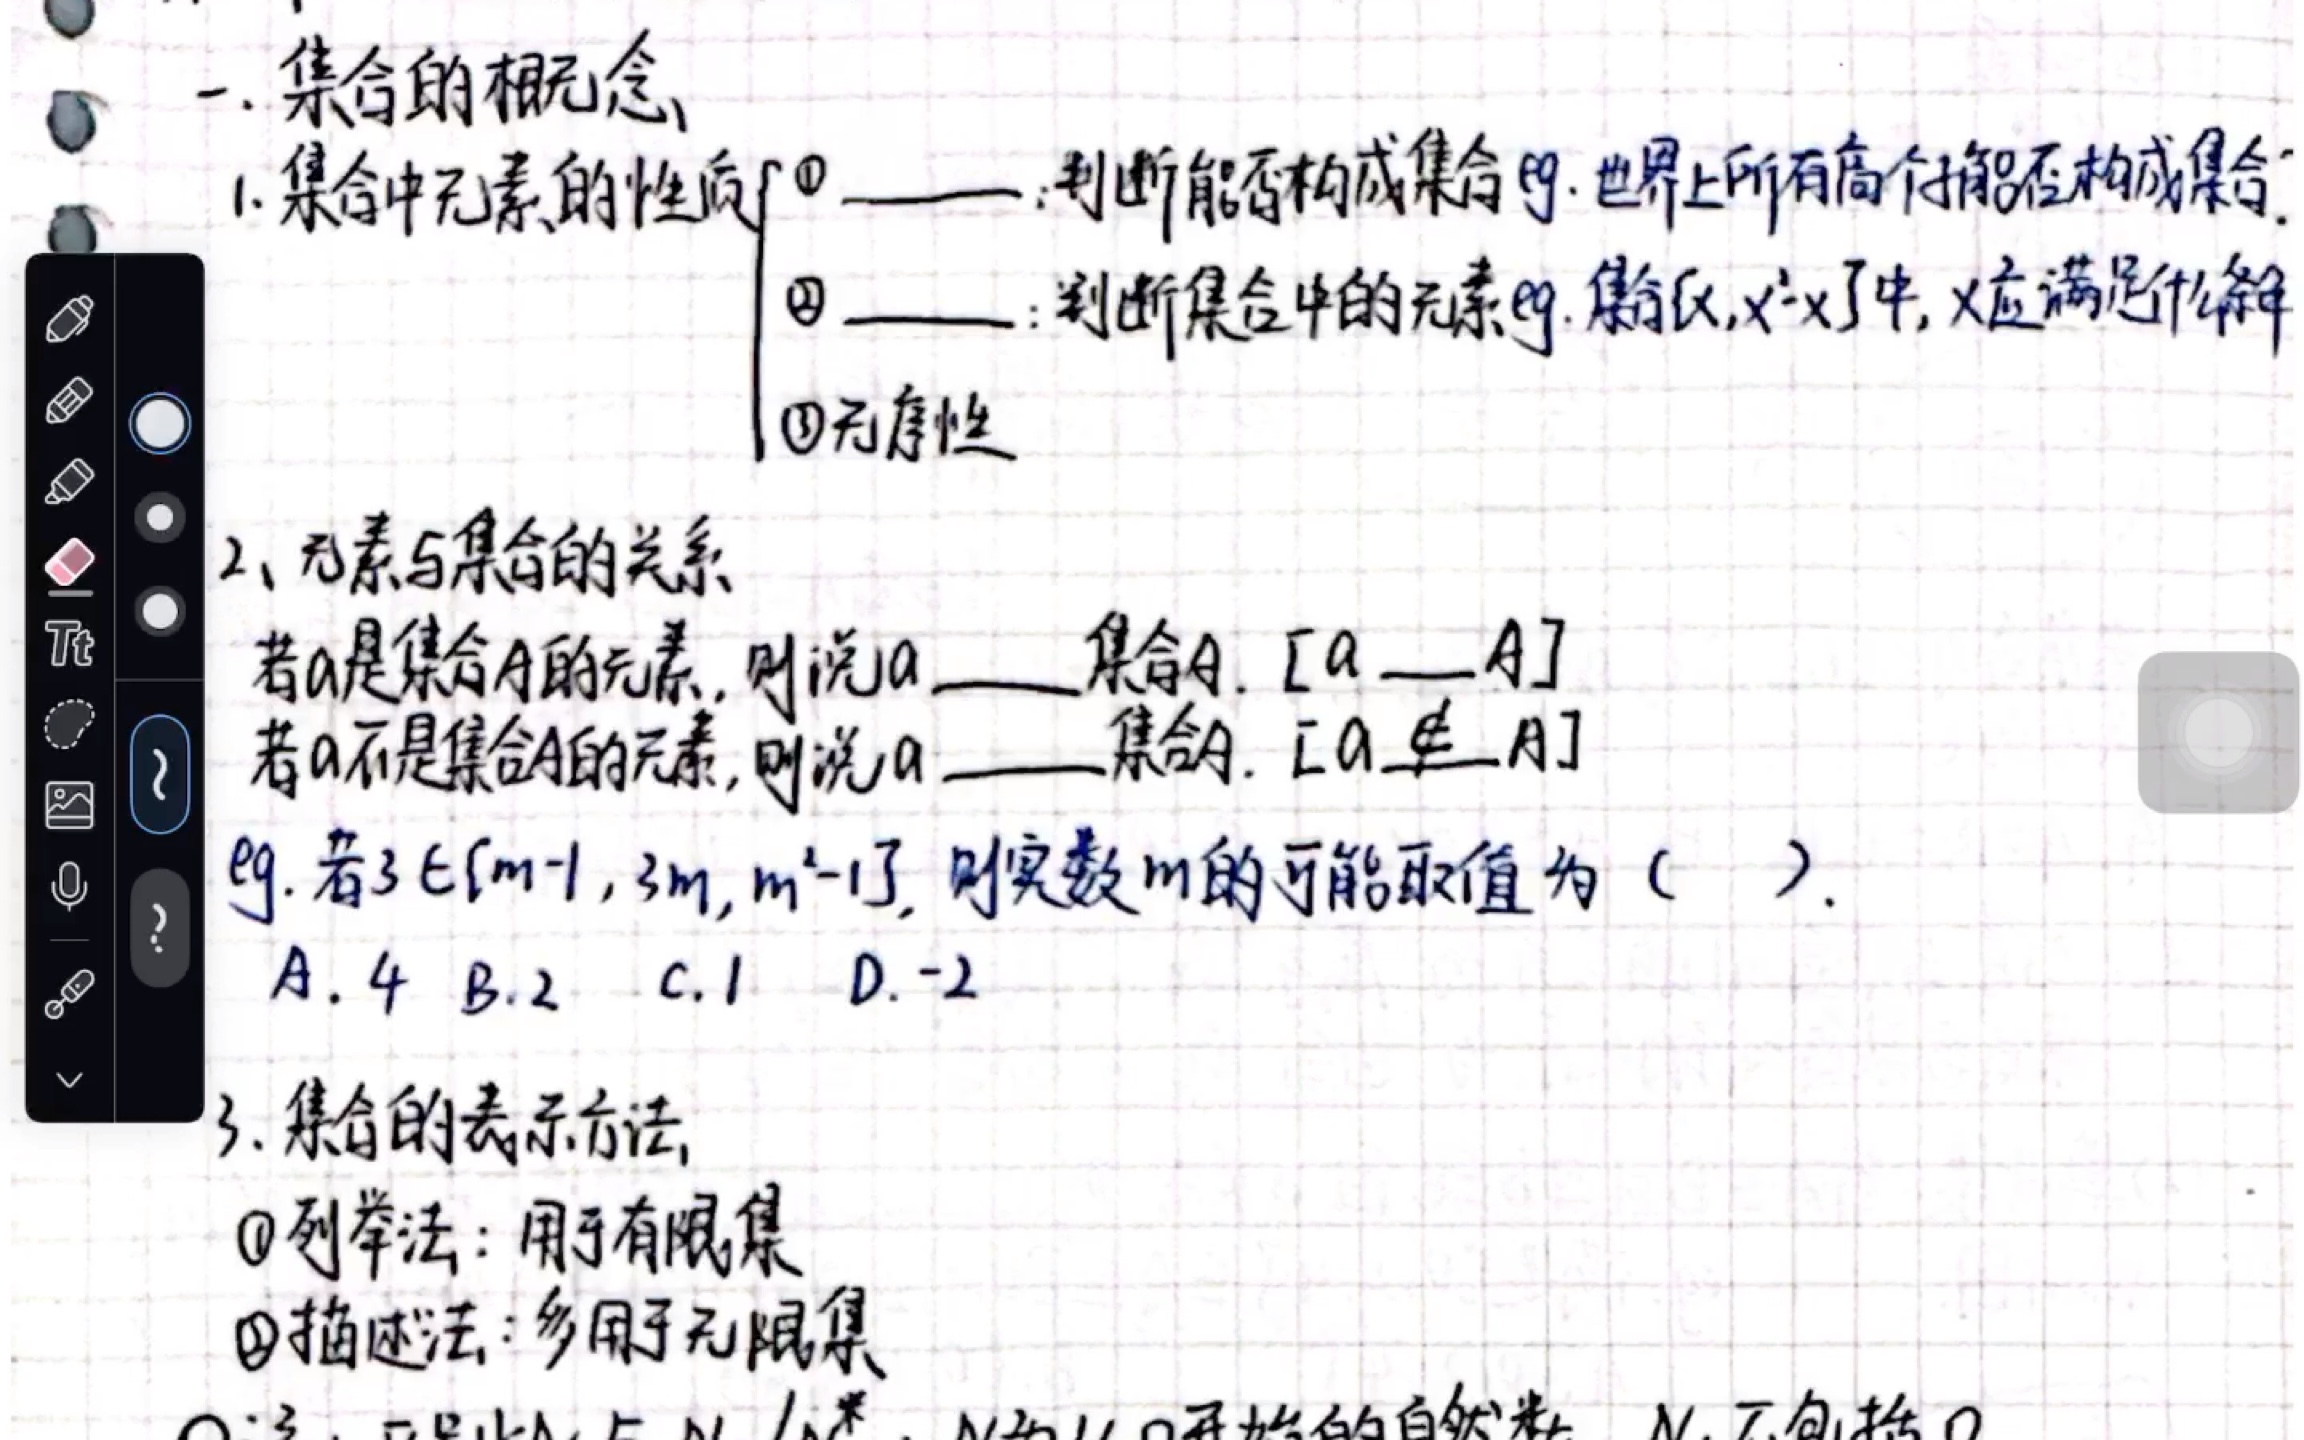 一. 集合的概念
1. 集合中元素的性质 ① ____ : 判断能否构成集合 eg. 世界上所有高个子能否构成集合?
② ____ : 判断集合中的元素 eg. 集合{x, x²-x}中, x应满足什么条件
③ 无序性
2、元素与集合的关系
若a是集合A的元素, 则说a ____ 集合A. [a __ A]
若a不是集合A的元素, 则说a ____ 集合A. [a ∉ A]
eg. 若3∈{m-1, 3m, m²-1}, 则实数m的可能取值为 ( ).
A. 4 B. 2 C. 1 D. -2
Tt
3. 集合的表示方法
① 列举法: 用于有限集
② 描述法: 多用于无限集